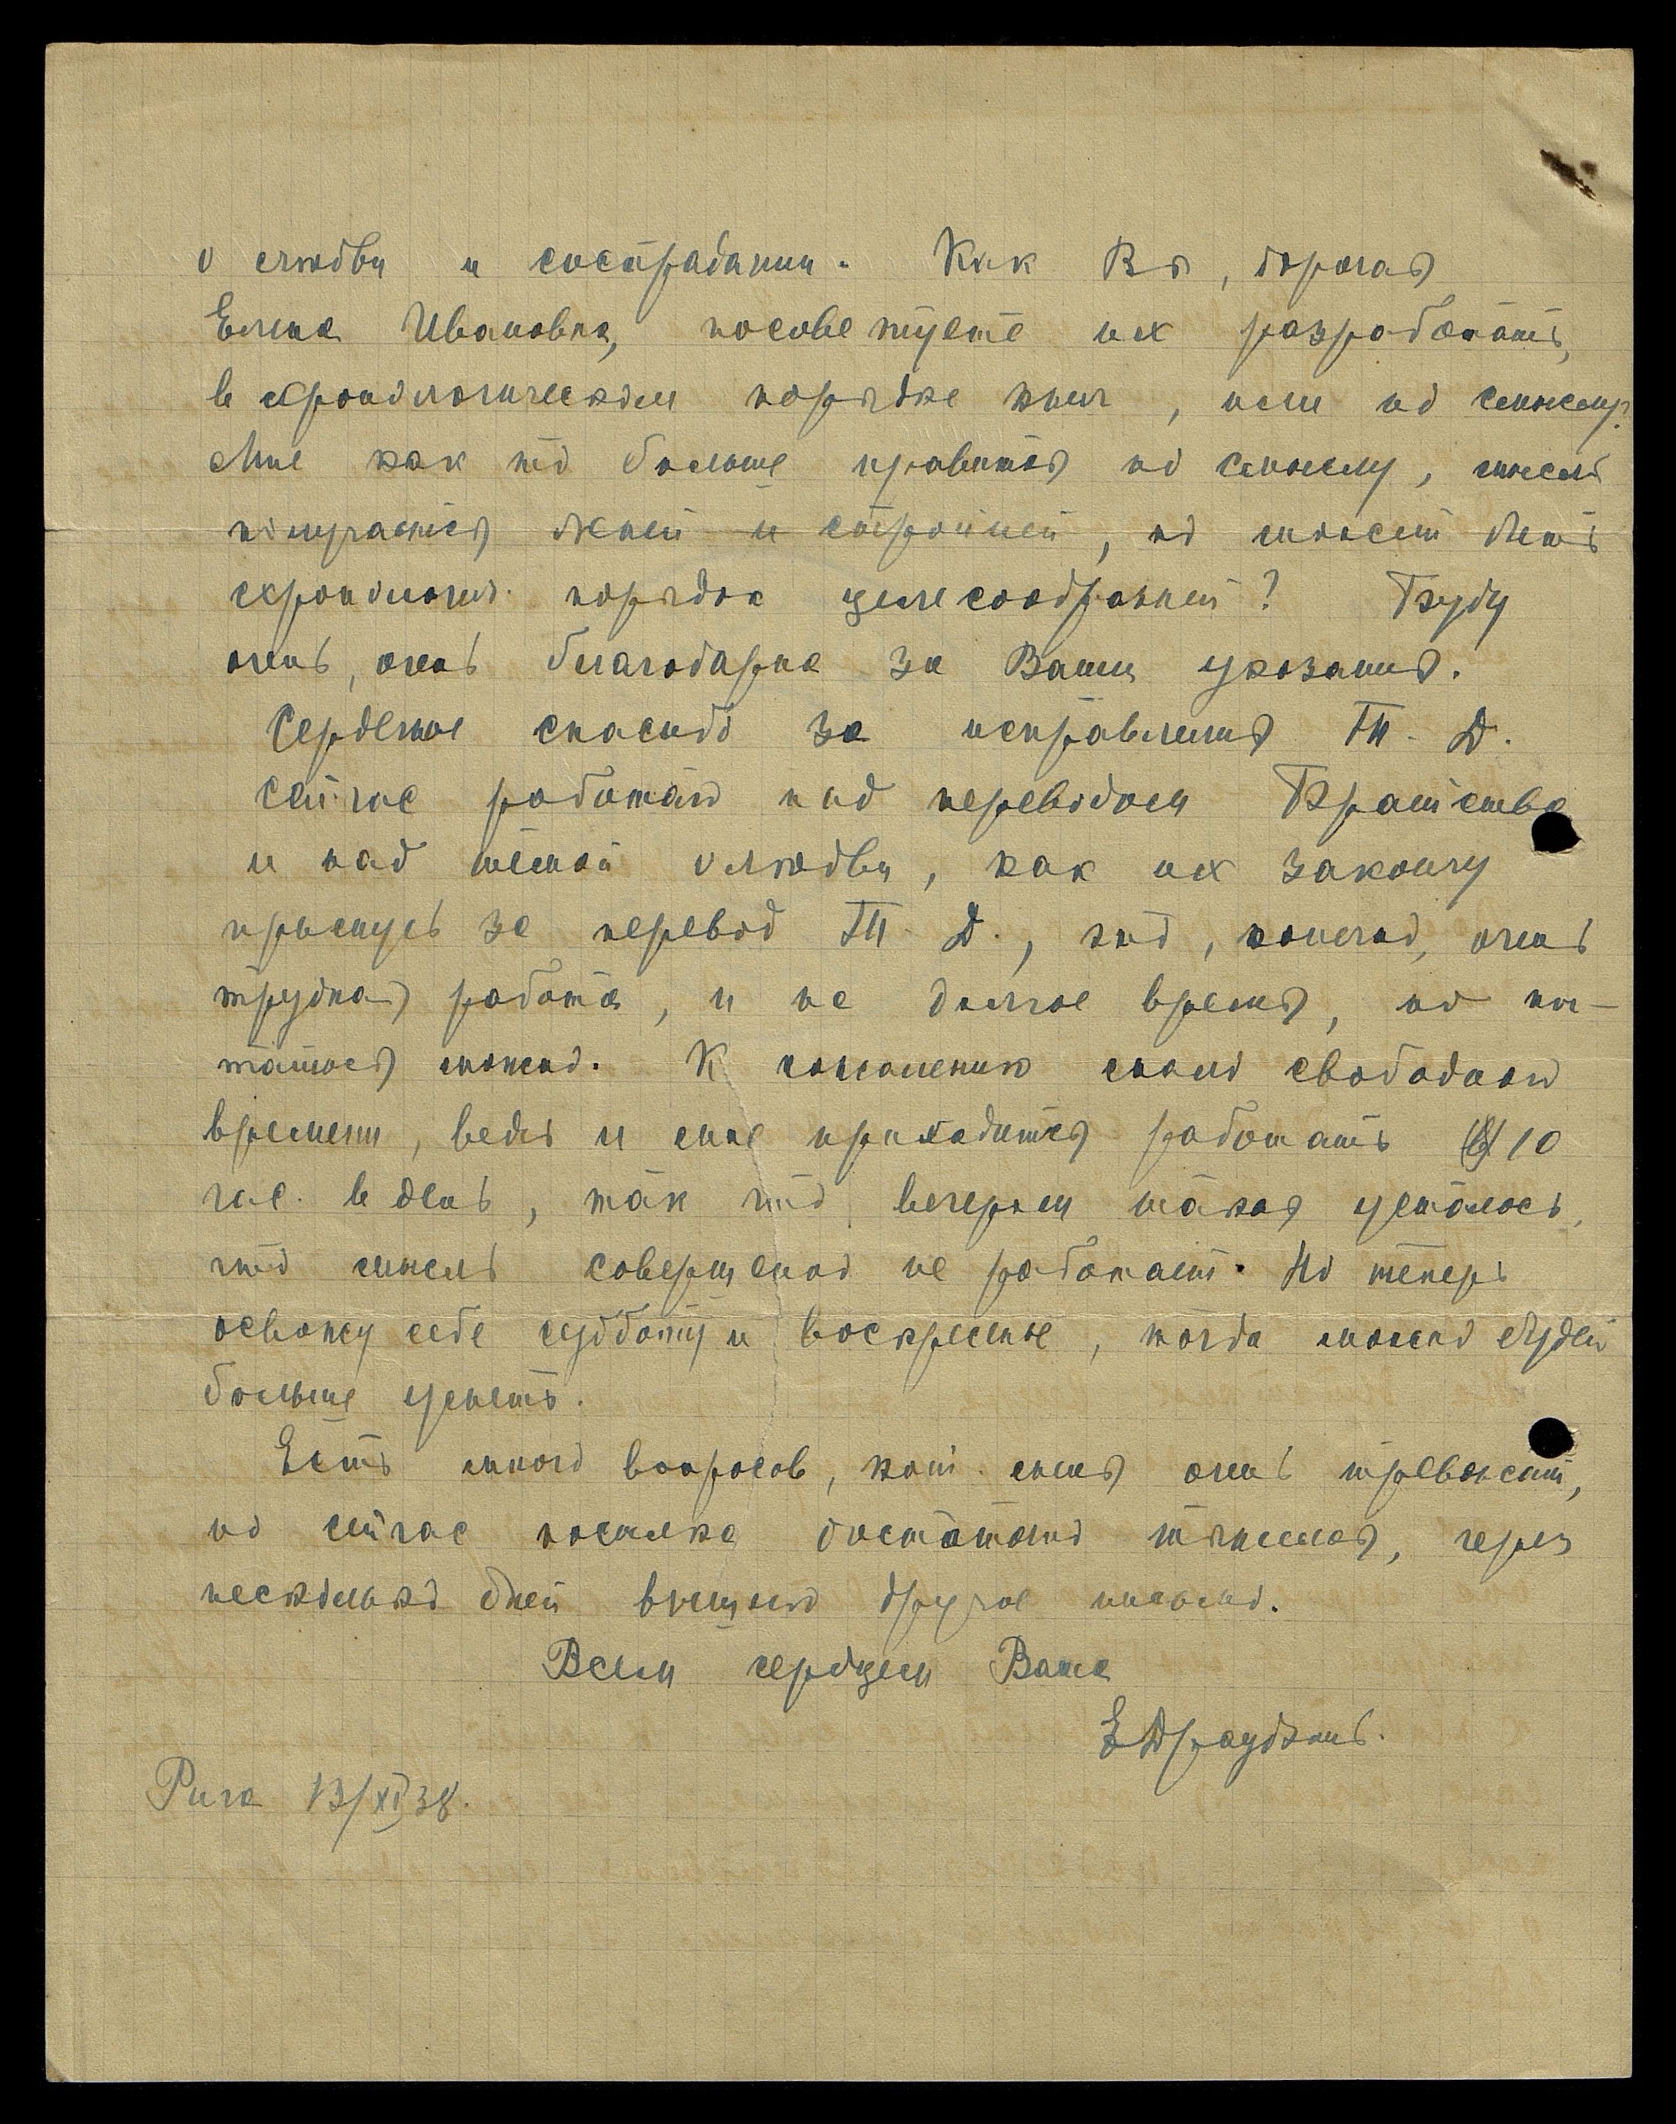 о любви и сострадании. Как Вы, дорогая
Елена Ивановна, посоветуете их разработать,
в хронологическом порядке книг, или по смыслу?
Мне как то больше нравится по смыслу, мысль
получается ясней и стройней, но может быть
хронологич. порядок целесообразней? Буду
очень, очень благодарна за Ваши указания.
Сердечное спасибо за исправления Т. Д.
Сейчас работаю над переводом Братства
и над темой о любви, как их закончу
примусь за перевод Т. Д., это, конечно, очень
трудная работа, и на долгое время, но пы-
таться можно. К сожалению мало свободного
времени, ведь и мне приходится работать 10
час. в день, так что вечером такая усталось,
что мысль совершенно не работает. Но теперь
освожу себе субботу и воскресенье, тогда можно будет
больше успеть.
Есть много вопросов, кот. меня очень тревожат,
но сейчас посылка достаточно тяжелая, через
несколько дней вышлю другое письмо.
Всем сердцем Ваша
Е Драудзинь.
Рига 13/XI 38.